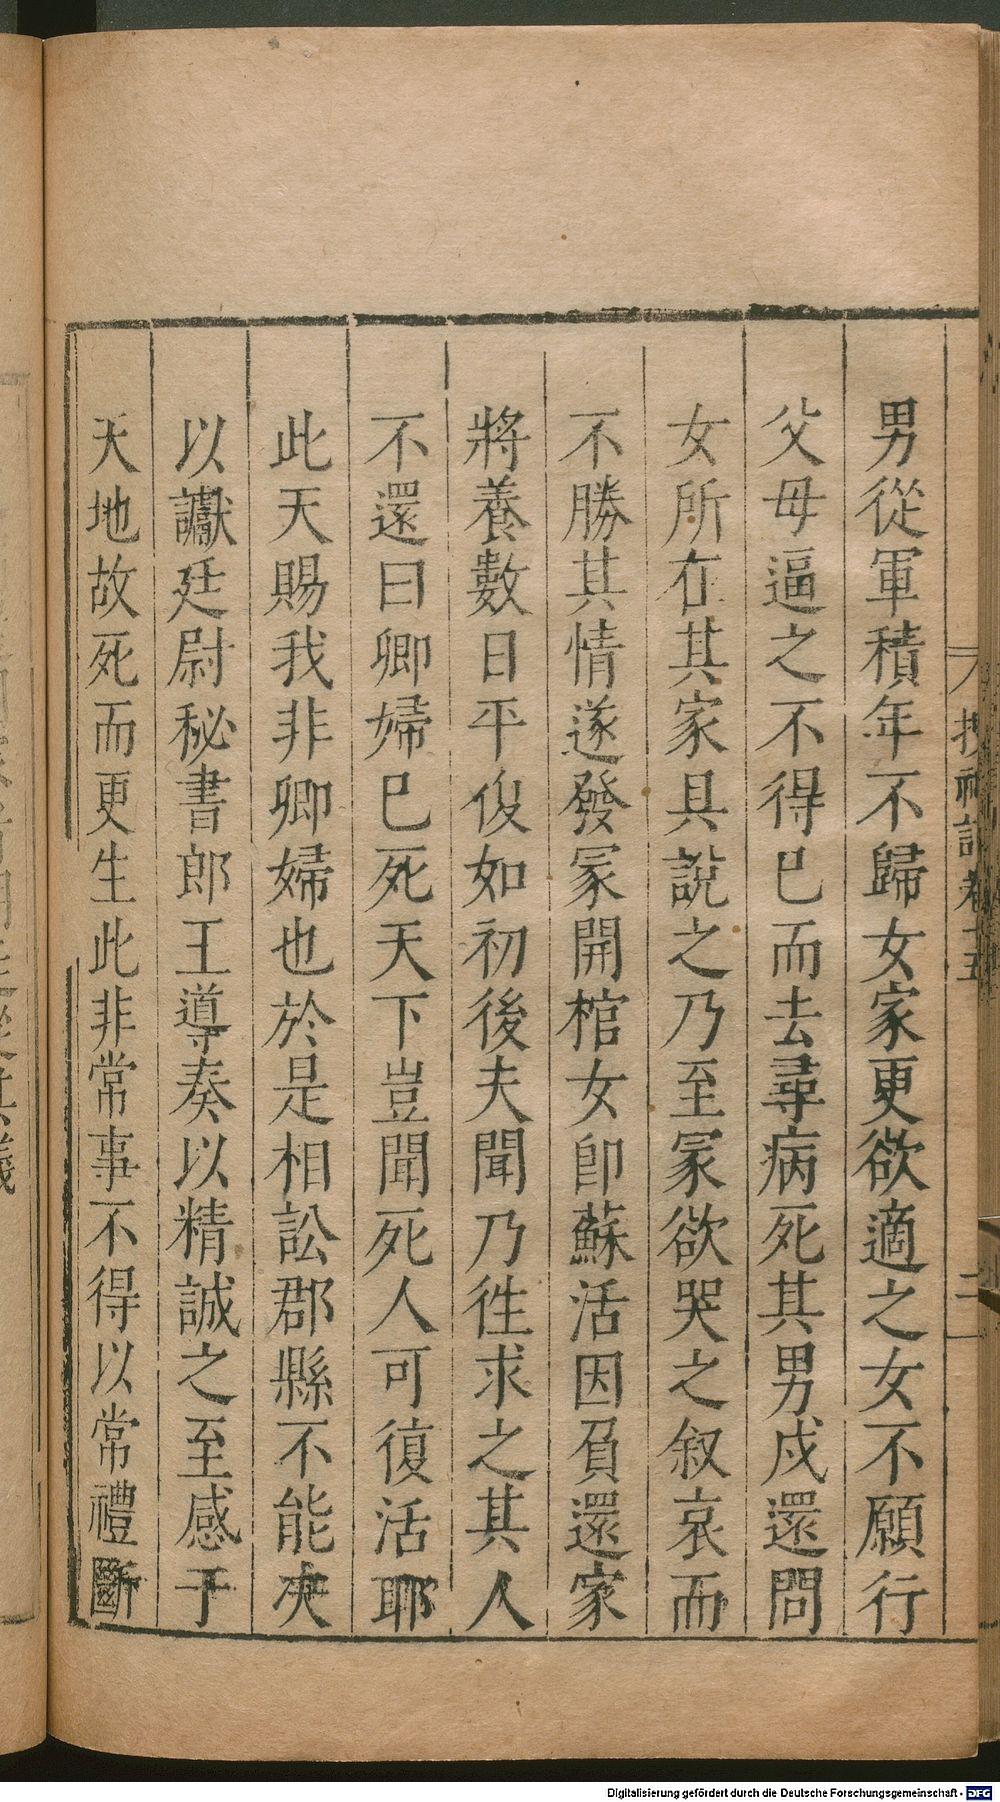 男從軍積年不歸女家更欲適之女不願行
父母逼之不得已而去尋病死其男戍還問
女所在其家具說之乃至冡欲哭之叙哀而
不勝其情遂發冡開棺女卽蘇活因負還家
將養數日平復如初後夫聞乃徃求之其人
不還曰卿婦已死天下豈聞死人可復活耶
此天賜我非卿婦也於是相訟郡縣不能決
以讞廷尉秘書郎王導奏以精誠之至感于
天地故死而更生此非常事不得以常禮斷
搜神記卷十五
三
Digitalisierung gefördert durch die Deutsche Forschungsgemeinschaft - DFG